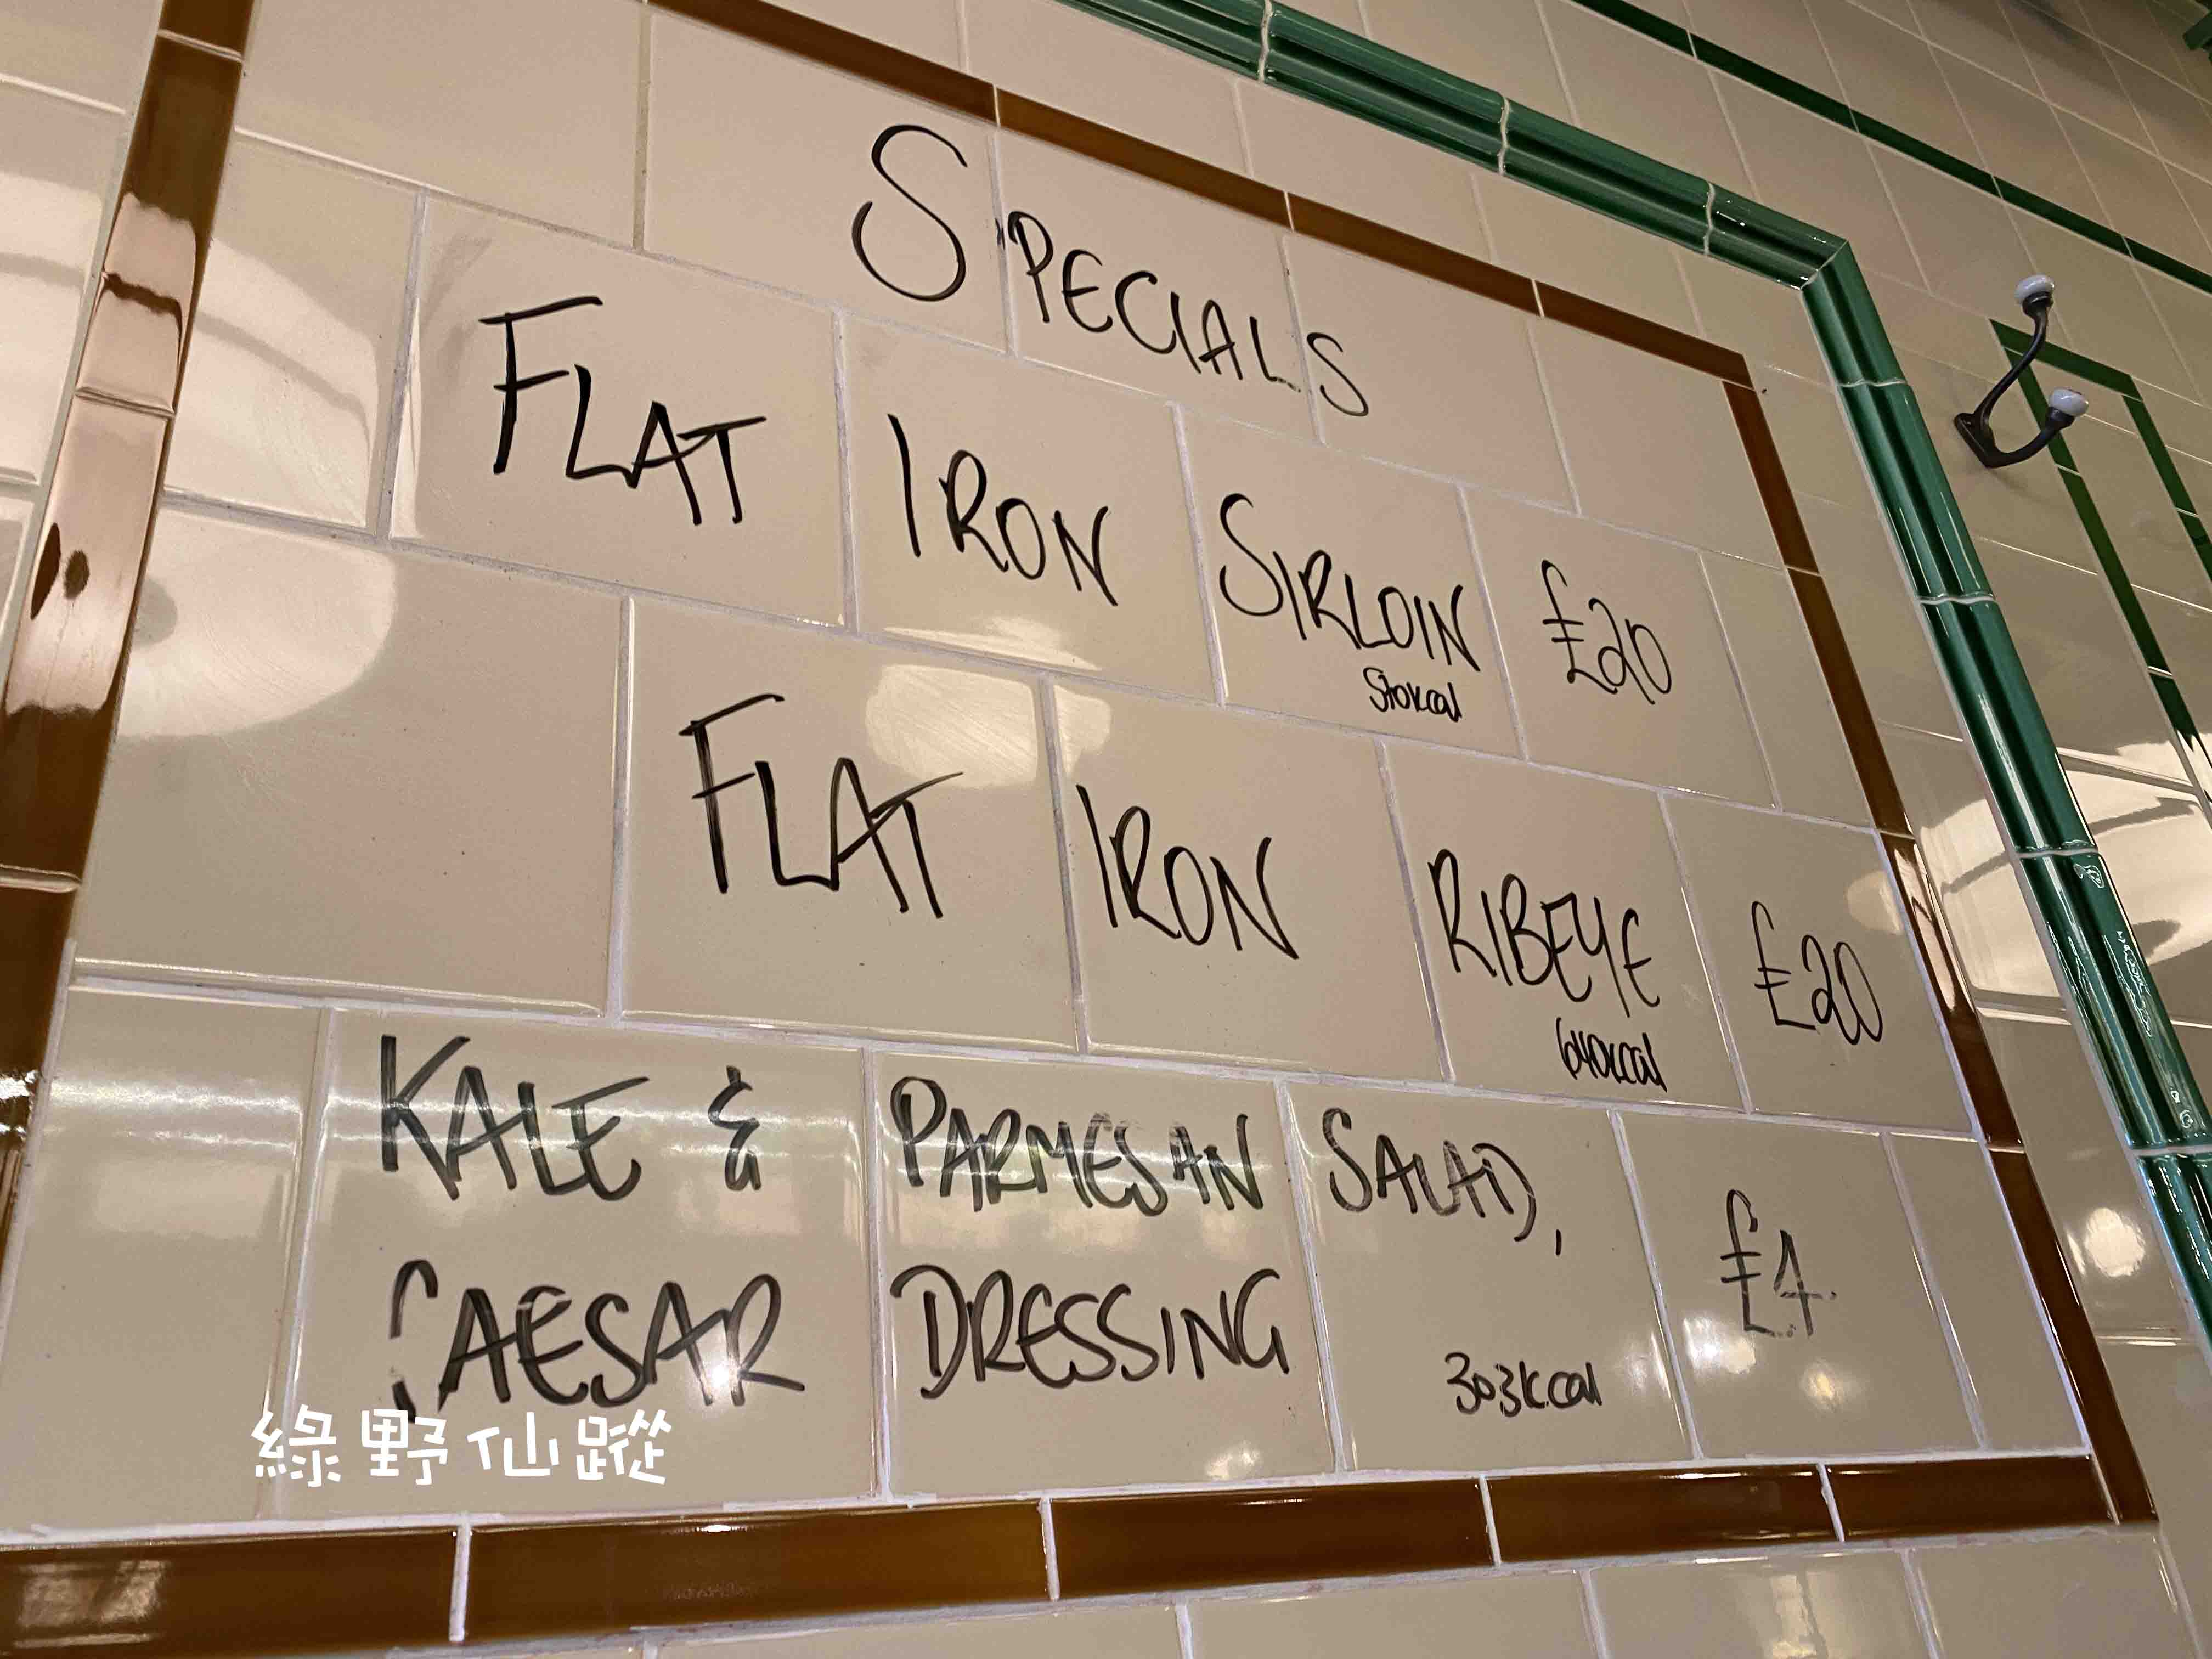 SPECIALS
FLAT IRON SIRLOIN £20
570kcal
FLAT IRON RIBEYE £20
640kcal
KALE & PARMESAN SALAD, £4
CAESAR DRESSING
303kcal
綠野仙蹤